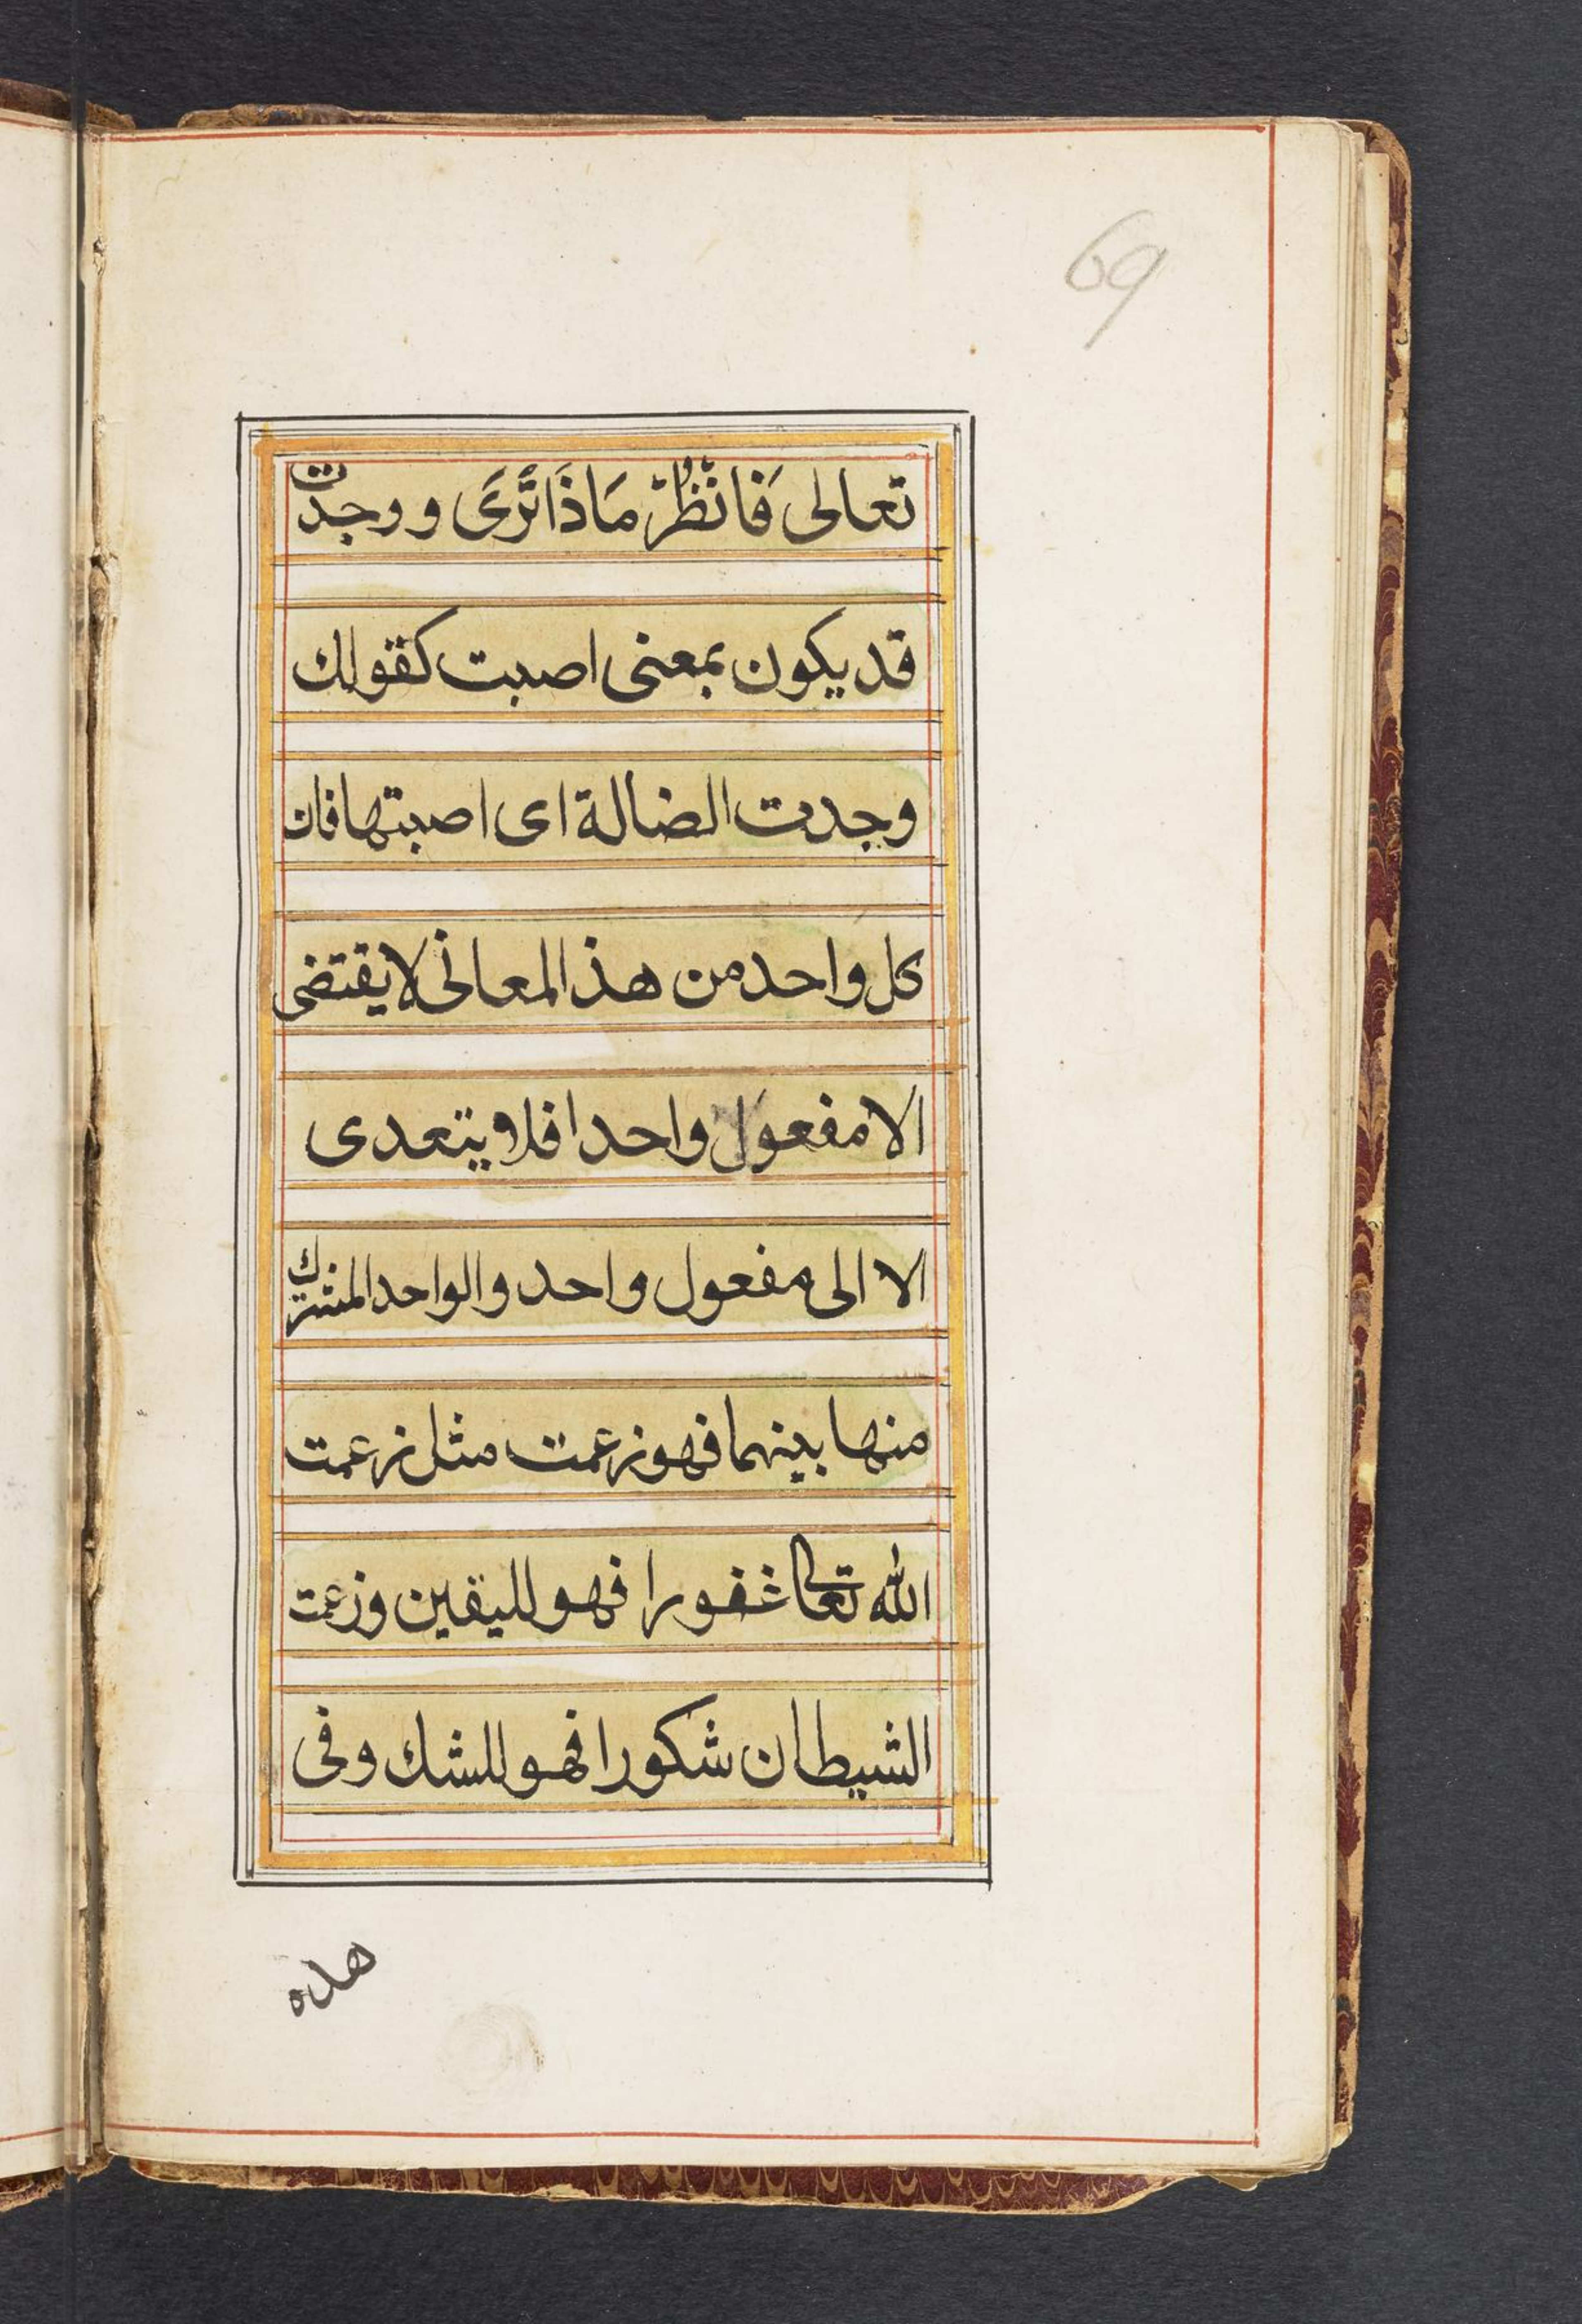 69
تعالى فَانْظُرْ مَاذَا تَرَى و وجدت
قد يكون بمعنى اصبت كقولك
وجدت الضالة اى اصبتها فان
كل واحد من هذ المعانى لا يقتضى
الا مفعول واحدا فلا يتعدى
الا الى مفعول واحد والواحد المشترك
منها بينهما فهو زعمت مثل زعمت
الله تعالى غفورا فهو لليقين وزعمت
الشيطان شكورا فهو للشك وفى
هذه